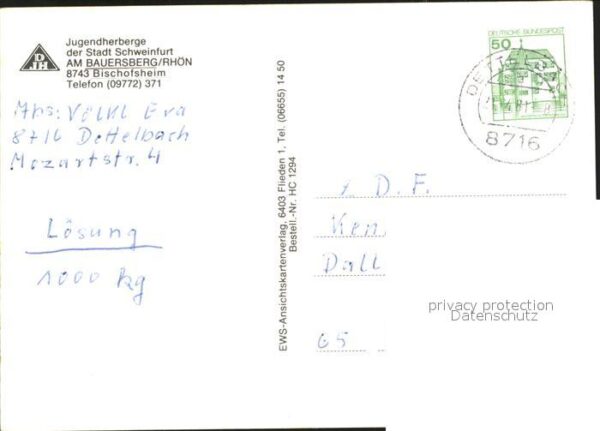 DJH
Jugendherberge
der Stadt Schweinfurt
AM BAUERSBERG/RHÖN
8743 Bischofsheim
Telefon (09772) 371
Abs: Völkl Eva
8716 Dettelbach
Mozartstr. 4
Lösung
1000 kg
EWS-Ansichtskartenverlag, 6403 Flieden 1, Tel. (06655) 14 50
Bestell.-Nr. HC 1294
DEUTSCHE BUNDESPOST
50
8716
D. F.
Ken
Dall
65
privacy protection
Datenschutz